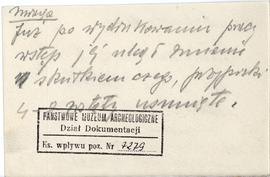 Uwaga
Już po wydrukowaniu pracy
wstęp jej uległ zmianie
wskutkiem czego, przypiski
4 zostały usunięte.
PAŃSTWOWE MUZEUM ARCHEOLOGICZNE
Dział Dokumentacji
Ks. wpływu poz. Nr 7279